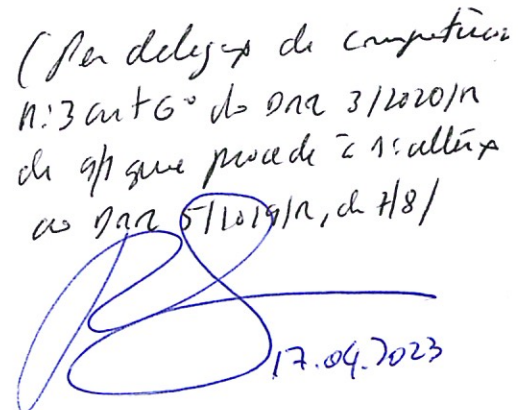 (Por delegação de competência
n.º 3 art 6º do DRR 3/2020/M
de 9/1 que procede à 1.ª alteração
ao DRR 5/2019/M, de 7/8/
17.04.2023